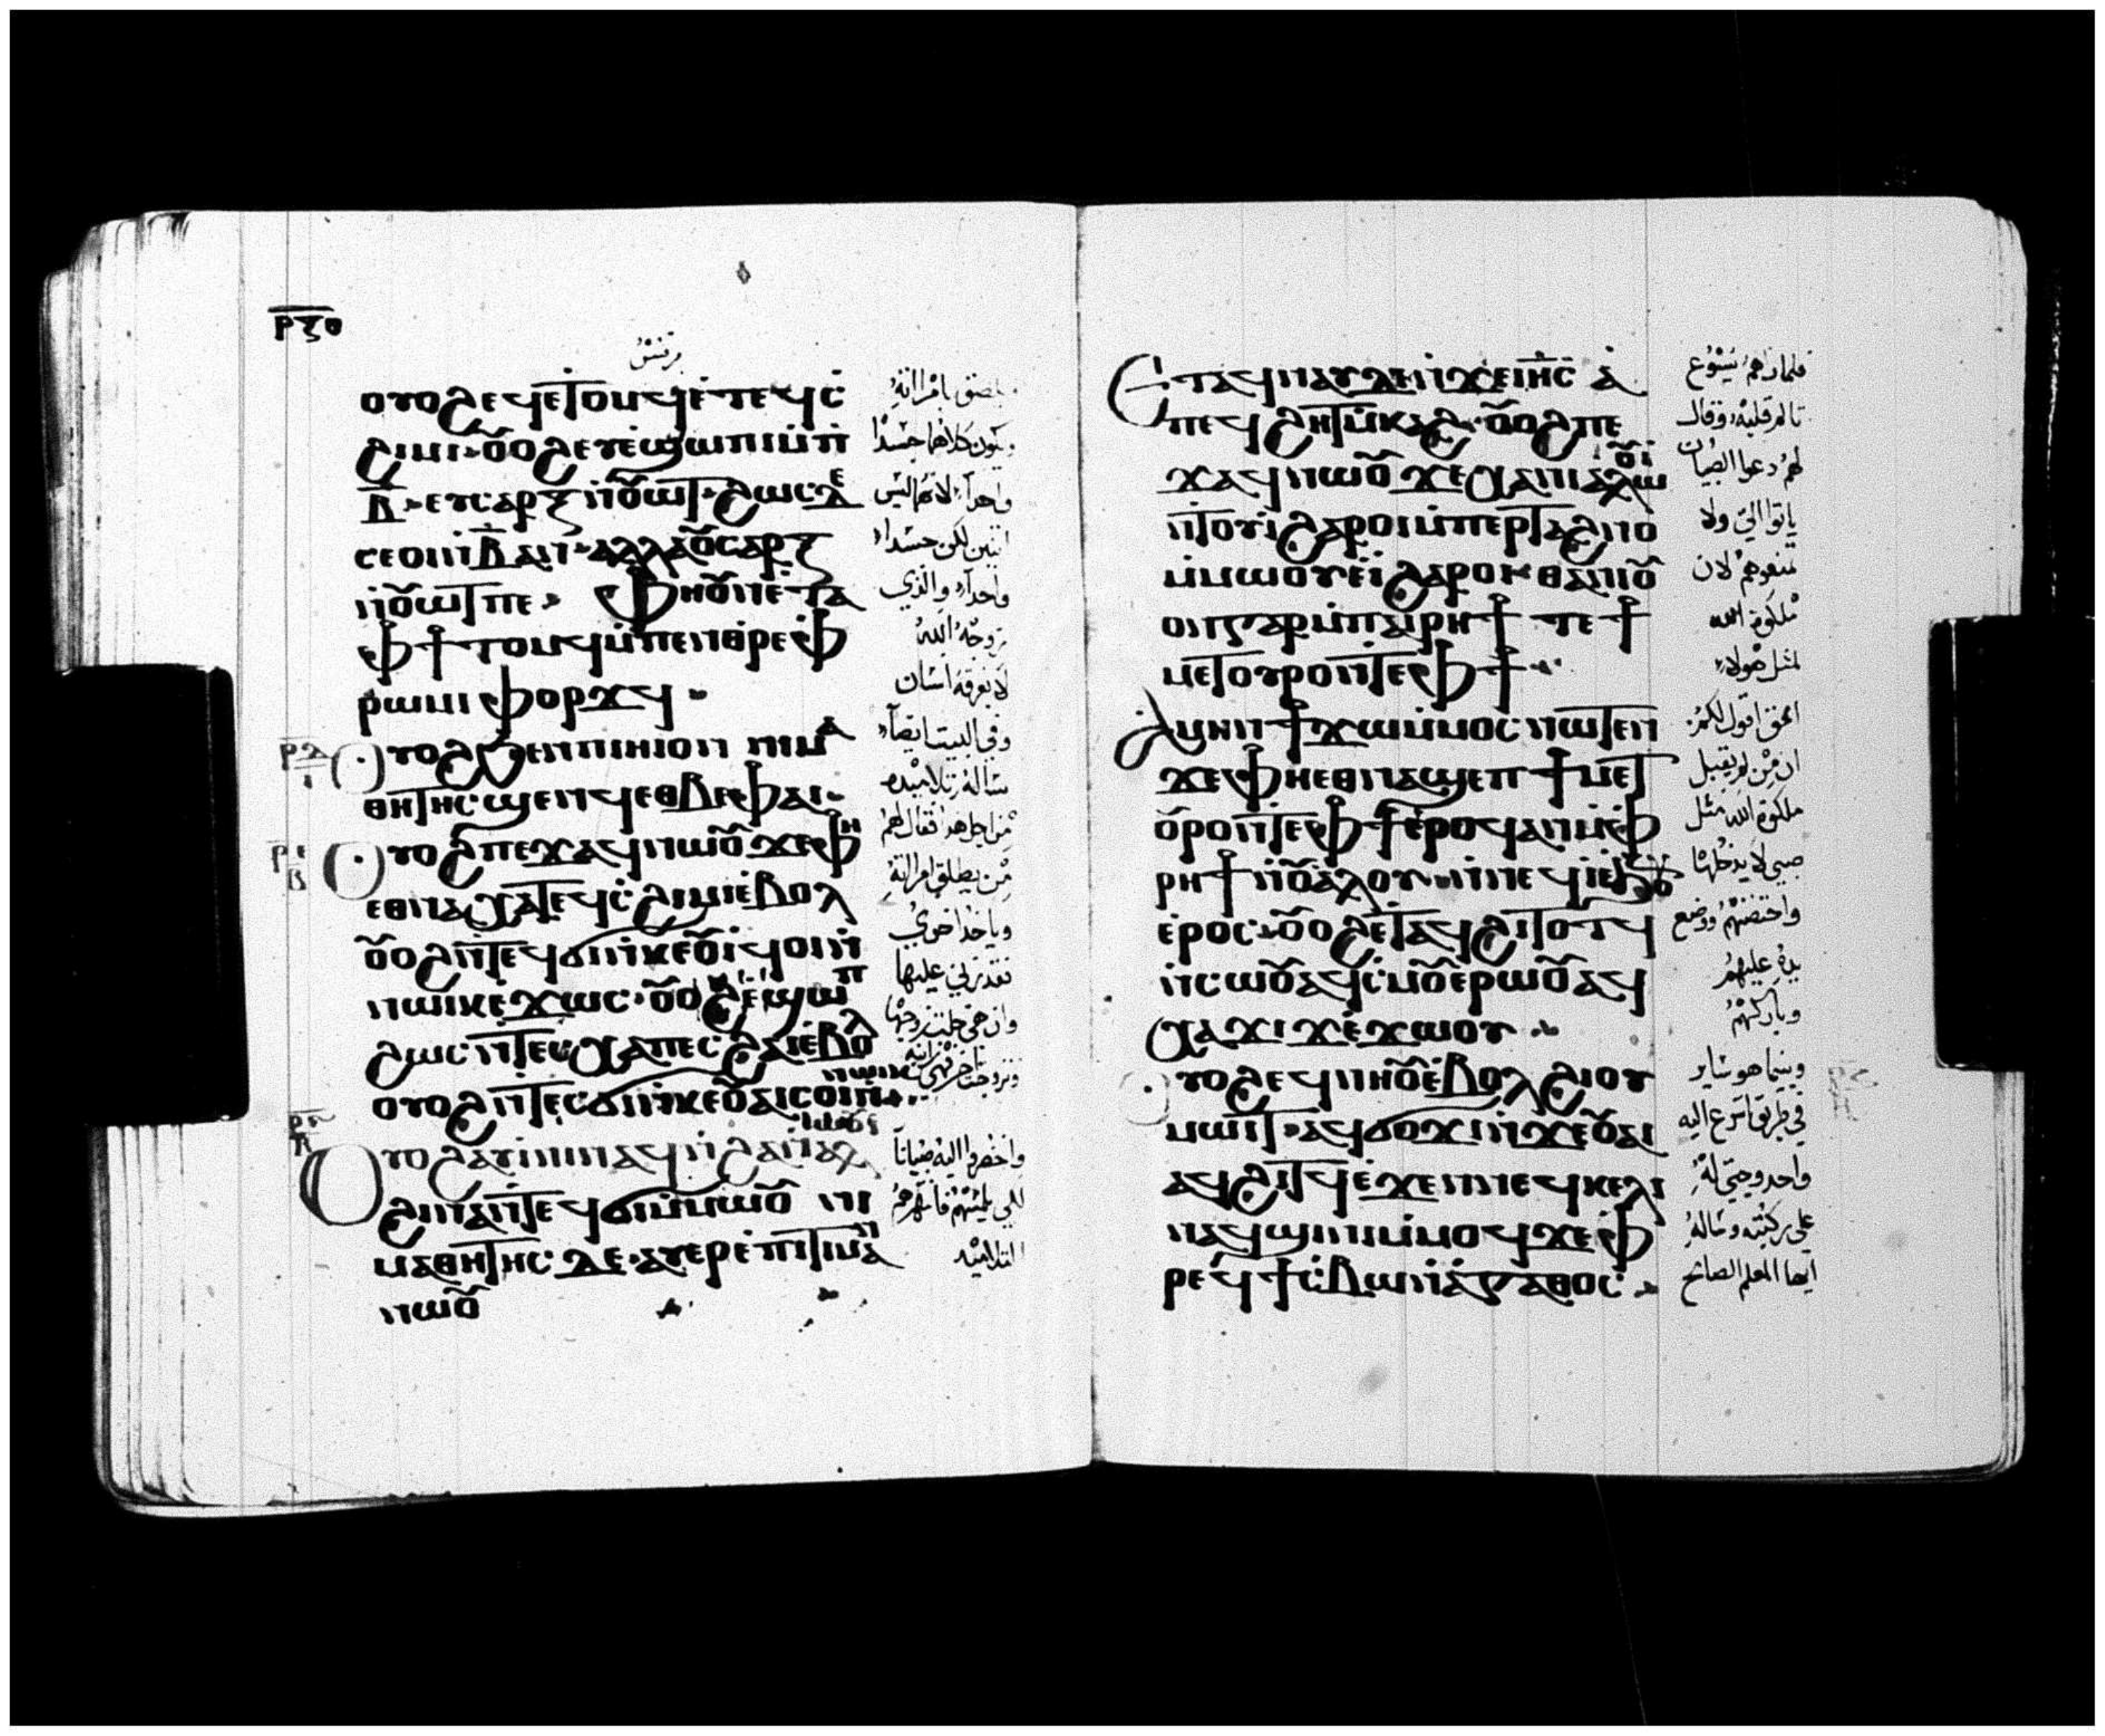 ⲣⲝⲑ
مرقس
ⲟⲩⲟϩ ⲉϥⲉⲧⲟⲙϥ ⲉ̀ⲧⲉϥⲥ̀
ϩⲓⲙⲓ ⲟⲩⲟϩ ⲉⲩⲉ̀ϣⲱⲡⲓ ⲙ̀ⲡⲓ
ⲃ̅ ⲉⲩⲥⲁⲣⲝ ⲛ̀ⲟⲩⲱⲧ ϩⲱⲥⲇⲉ
ⲥⲉⲟⲓ ⲛ̀ⲃ̅ ⲁⲛ ⲁⲗⲗⲁ ⲟⲩⲥⲁⲣⲝ
ⲛ̀ⲟⲩⲱⲧ ⲡⲉ ⲫⲏ ⲟⲩⲛ ⲉ̀ⲧⲁ
ⲫϯ ⲧⲟⲙϥ ⲙ̀ⲡⲉⲛⲑⲣⲉ ⲫ
ⲣⲱⲙⲓ ⲫⲟⲣϫϥ
ⲟⲩⲟϩ ϧⲉⲛ ⲡⲓⲏⲓ ⲟⲛ ⲛⲓⲙⲁ
ⲑⲏⲧⲏⲥ ϣⲉⲛϥ ⲉⲑⲃⲉ ⲫⲁⲓ
ⲟⲩⲟϩ ⲡⲉϫⲁϥ ⲛⲱⲟⲩ ϫⲉ ⲫⲏ
ⲉⲑⲛⲁⲭⲁ ⲧⲉϥⲥ̀ϩⲓⲙⲓ ⲉ̀ⲃⲟⲗ
ⲟⲩⲟϩ ⲛ̀ⲧⲉϥϭⲓ ⲛ̀ⲕⲉⲟⲩⲓ̀ ϥⲟⲓ ⲛ̀
ⲛⲱⲓⲕ ⲉ̀ϫⲱⲥ ⲟⲩⲟϩ ⲉ̀ϣⲱⲡ
ϩⲱⲥ ⲛ̀ⲧⲉⲥⲭⲁ ⲡⲉⲥϩⲁⲓ ⲉ̀ⲃⲟⲗ
ⲟⲩⲟϩ ⲛ̀ⲧⲉⲥϭⲓ ⲛ̀ⲕⲉⲟⲩⲁⲓ ⲥⲟⲓ ⲛ̀
ⲛⲱⲓⲕ
ⲟⲩⲟϩ ⲁⲩⲓ̀ⲛⲓ ⲛⲁϥ ⲛ̀ϩⲁⲛⲁⲗ
ϩⲓⲛⲁ ⲛ̀ⲧⲉϥϭⲓ ⲛⲉⲙⲱⲟⲩ ⲛⲓ
ⲙⲁⲑⲏⲧⲏⲥ ⲇⲉ ⲁⲩⲉⲣⲉ̀ⲡⲓⲧⲓⲙⲁⲛ
ⲛⲱⲟⲩ
يلصق بامراته
ويكون كلاهما جسدا
واحدا لانهما ليس
اثنين لكن جسدا
واحدا والذي
زوجه الله
لا يفرقه انسان
وفي البيت ايضا
ساله تلاميذه
من اجل هذا فقال لهم
من يطلق امراته
وياخذ اخري
فقد زني عليها
وان هي خلت زوجها
وتزوجت اخر فهي زانيه
واحضروا اليه صبيانا
لكي يلمسهم فانتهرهم
التلاميذ
ⲉⲧⲁϥⲛⲁⲩ ⲇⲉ ⲛ̀ϫⲉ ⲓⲏⲥ ⲁ̀
ⲡⲉϥϩⲏⲧ ⲙ̀ⲕⲁϩ ⲟⲩⲟϩ ⲡⲉ
ϫⲁϥ ⲛⲱⲟⲩ ϫⲉ ⲭⲁ ⲛⲓⲁⲗⲱⲟⲩⲓ̀
ⲛ̀ⲧⲟⲩⲓ̀ ϩⲁⲣⲟⲓ ⲙ̀ⲡⲉⲣⲧⲁϩⲛⲟ
ⲙ̀ⲙⲱⲟⲩ ⲉ̀ⲓ̀ ϩⲁⲣⲟⲓ ⲑⲁ ⲛⲓⲟⲩ
ⲟⲛ ⲅⲁⲣ ⲙ̀ⲡⲁⲓⲣⲏϯ ⲧⲉ ϯ
ⲙⲉⲧⲟⲩⲣⲟ ⲛ̀ⲧⲉ ⲫϯ
ⲁⲙⲏⲛ ϯϫⲱ ⲙ̀ⲙⲟⲥ ⲛⲱⲧⲉⲛ
ϫⲉ ⲫⲏ ⲉⲑⲛⲁϣⲉⲡ ϯⲙⲉⲧ
ⲟⲩⲣⲟ ⲛ̀ⲧⲉ ⲫϯ ⲉ̀ⲣⲟϥ ⲁⲛ ⲙ̀ⲫ
ⲣⲏϯ ⲛ̀ⲟⲩⲁⲗⲟⲩ ⲛ̀ⲛⲉϥⲓ̀ ⲉ̀ϧⲟⲩⲛ
ⲉ̀ⲣⲟⲥ ⲟⲩⲟϩ ⲉ̀ⲧⲁϥϩⲓⲧⲟⲧϥ
ⲛ̀ⲥⲱⲟⲩ ⲁϥⲥ̀ⲙⲟⲩ ⲉⲣⲱⲟⲩ ⲁϥ
ⲭⲁ ϫⲓϫ ⲉ̀ϫⲱⲟⲩ
ⲟⲩⲟϩ ⲉϥⲛⲏⲟⲩ ⲉ̀ⲃⲟⲗ ϩⲓ ⲟⲩ
ⲙⲱⲓⲧ ⲁϥϭⲟϫⲓ ⲛ̀ϫⲉ ⲟⲩⲁⲓ
ⲁϥϩⲓⲧϥ ⲉ̀ϫⲉⲛ ⲛⲉϥⲕⲉⲗⲓ
ⲛⲁϥϣⲓⲛⲓ ⲙ̀ⲙⲟϥ ϫⲉ ⲫ
ⲣⲉϥϯⲥ̀ⲃⲱ ⲛ̀ⲁ̀ⲅⲁⲑⲟⲥ
فلما راهم يسوع
تالم قلبه وقال
لهم دعوا الصبيان
ياتوا الي ولا
تمنعوهم لان
ملكوة الله
لمثل هولاء
الحق اقول لكم
ان من لم يقبل
ملكوة الله مثل
صبي لا يدخلها
واحتضنهم ووضع
يده عليهم
وباركهم
وبينما هو ساير
في طريق اسرع اليه
واحد وجثي له
علي ركبتيه وساله
ايها المعلم الصالح